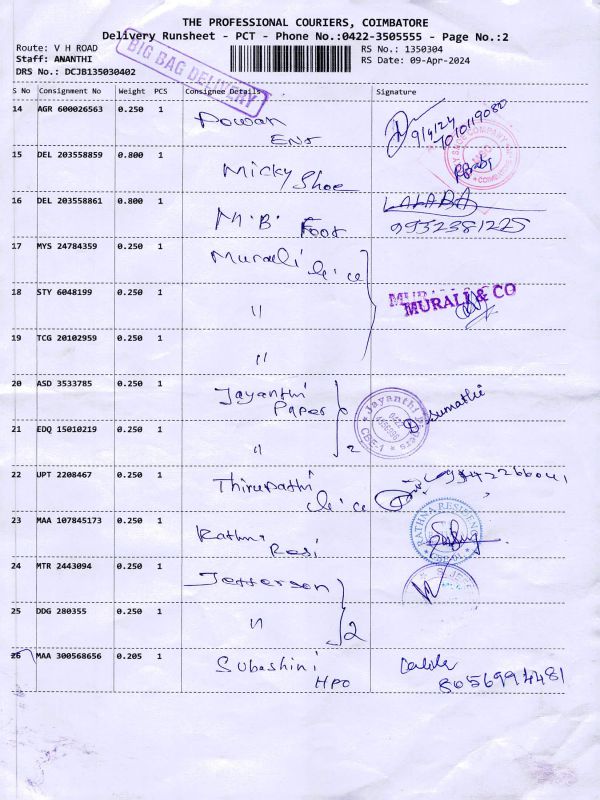 THE PROFESSIONAL COURIERS, COIMBATORE
Delivery Runsheet - PCT - Phone No.:0422-3505555 - Page No.:2
Route: V H ROAD
RS No.: 1350304
Staff: ANANTHI
RS Date: 09-Apr-2024
DRS No.: DCJB135030402
BIG BAG DELIVERY
S No Consignment No Weight PCS Consignee Details Signature
14 AGR 600026563 0.250 1
9/4/24
15 DEL 203558859 0.800 1 Micky Shoe
16 DEL 203558861 0.800 1 M.B. Foot
9952381225
17 MYS 24784359 0.250 1 Murali
18 STY 6048199 0.250 1 "
MURALI & CO
19 TCG 20102959 0.250 1 "
20 ASD 3533785 0.250 1 Jayanthi Paper
Sumathi
21 EDQ 15010219 0.250 1 " 2
22 UPT 2208467 0.250 1 Thirupathi
23 MAA 107845173 0.250 1 Rathna Resi
RATHNA RESIDENCY
24 MTR 2443094 0.250 1 Jefferson
25 DDG 280355 0.250 1 " 2
26 MAA 300568656 0.205 1 Subashini HPO
8056994481